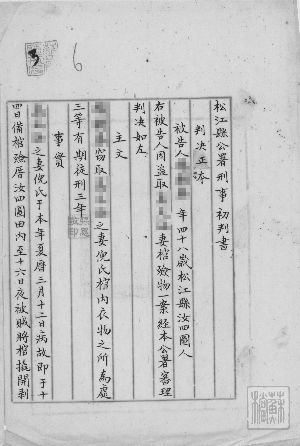 6
3
松江縣公署刑事初判書
判決正本
被告人 年四十八歲松江縣汝四圖人
右被告人因盜取 妻棺殮物一案經本公署審理
判决如左
主文
竊取 之妻倪氏棺內衣物之所爲處
三等有期徒刑三年
事實
之妻倪氏于本年夏曆三月十二日病故即于十
四日備棺殮厝汝四圖田內至十六日夜被賊將棺撬開剥